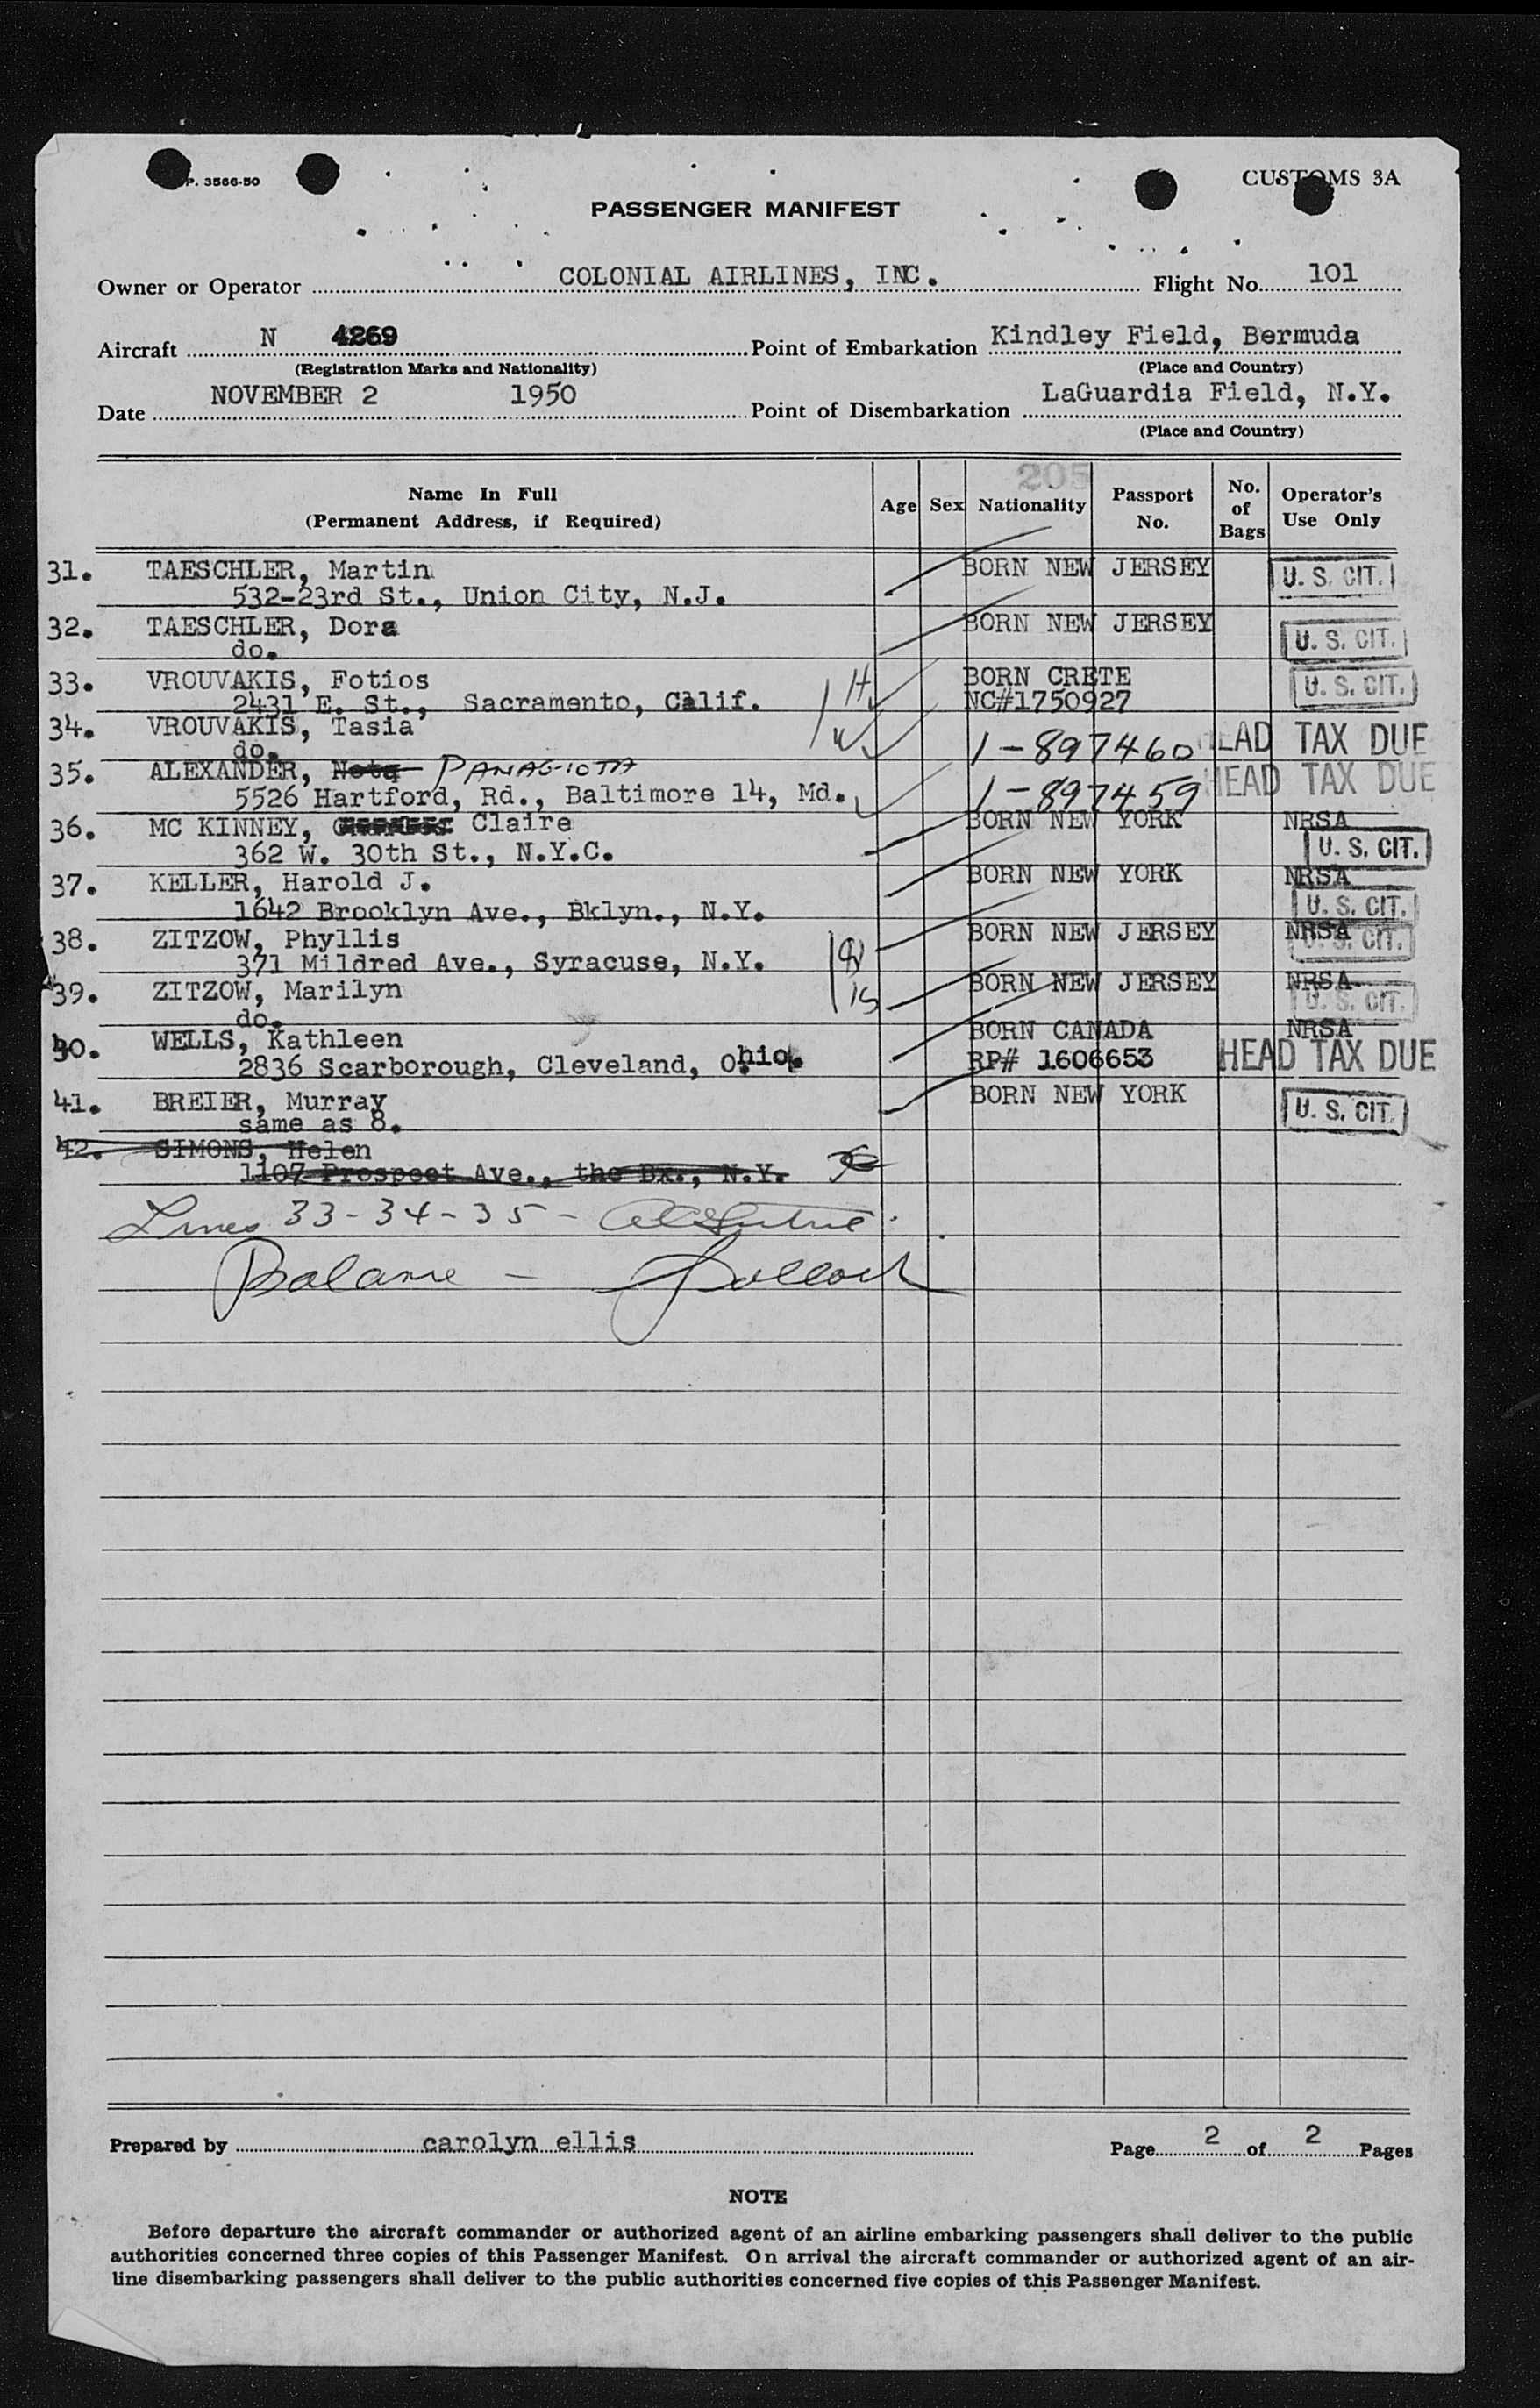 P. 3566-50
CUSTOMS 3A
PASSENGER MANIFEST
Owner or Operator COLONIAL AIRLINES, INC. Flight No. 101
Aircraft N 4269 Point of Embarkation Kindley Field, Bermuda
(Registration Marks and Nationality) (Place and Country)
Date NOVEMBER 2 1950 Point of Disembarkation LaGuardia Field, N.Y.
(Place and Country)
205
Name In Full (Permanent Address, if Required) Age Sex Nationality Passport No. No. of Bags Operator's Use Only
31. TAESCHLER, Martin BORN NEW JERSEY U. S. CIT.
532-23rd St., Union City, N.J.
32. TAESCHLER, Dora BORN NEW JERSEY U. S. CIT.
do.
33. VROUVAKIS, Fotios H BORN CRETE U. S. CIT.
2431 E. St., Sacramento, Calif. NC#1750927
34. VROUVAKIS, Tasia W 1-897460 HEAD TAX DUE
do.
35. ALEXANDER, Nota PANAGIOTA HEAD TAX DUE
5526 Hartford, Rd., Baltimore 14, Md. 1-897459
36. MC KINNEY, Claire BORN NEW YORK NRSA
362 W. 30th St., N.Y.C. U. S. CIT.
37. KELLER, Harold J. BORN NEW YORK NRSA
1642 Brooklyn Ave., Bklyn., N.Y. U. S. CIT.
38. ZITZOW, Phyllis BORN NEW JERSEY NRSA
371 Mildred Ave., Syracuse, N.Y. U. S. CIT.
39. ZITZOW, Marilyn BORN NEW JERSEY NRSA
do. U. S. CIT.
40. WELLS, Kathleen BORN CANADA NRSA
2836 Scarborough, Cleveland, Ohio. RP# 1606653 HEAD TAX DUE
41. BREIER, Murray BORN NEW YORK U. S. CIT.
same as 8.
42. SIMONS, Helen
1107 Prospect Ave., the Bx., N.Y.
Lines 33-34-35-
Balance -
Prepared by carolyn ellis Page 2 of 2 Pages
NOTE
Before departure the aircraft commander or authorized agent of an airline embarking passengers shall deliver to the public
authorities concerned three copies of this Passenger Manifest. On arrival the aircraft commander or authorized agent of an air-
line disembarking passengers shall deliver to the public authorities concerned five copies of this Passenger Manifest.